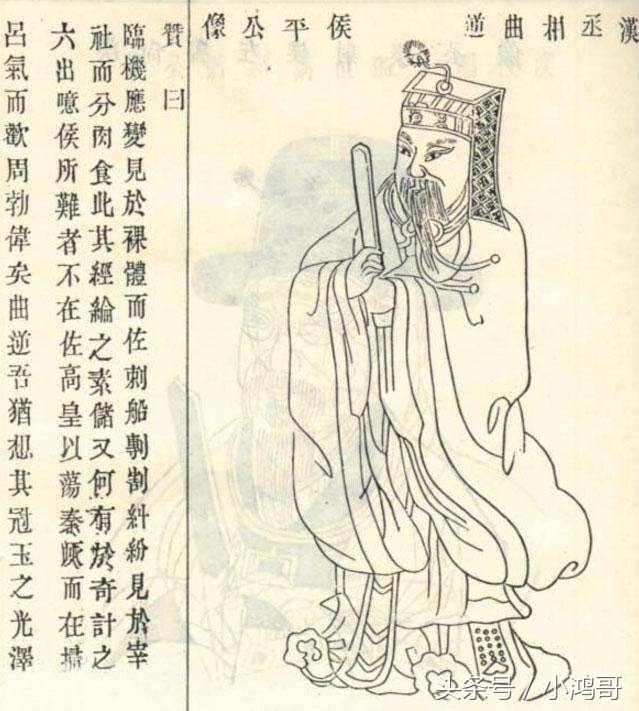 漢丞相曲逆侯平公像
贊曰
臨機應變見於裸體而佐刺船剸割糾紛見於宰
社而分肉食此其經綸之素儲又何有於奇計之
六出噫侯所難者不在佐高皇以蕩秦而在
呂氣而歡周勃偉矣曲逆吾猶想其冠玉之光澤
头条号 / 小鸿哥